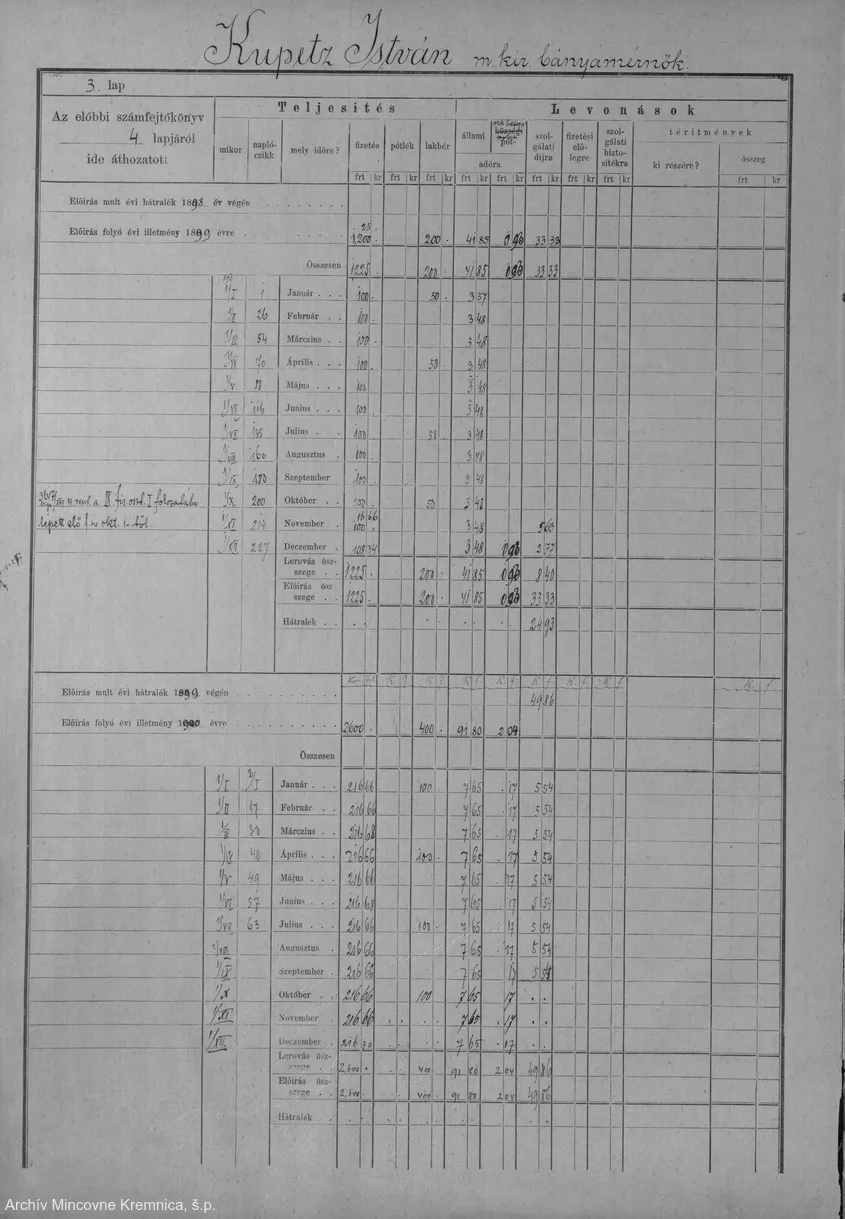 Kupetz István m. kir. bányamérnök.
3. lap
Az előbbi számfejtőkönyv
4 lapjáról
ide áthozatott
Teljesités
Levonások
mikor
napló-
czikk
mely időre?
fizetés
pótlék
lakbér
állami
pót-
adóra
szol-
gálati
díjra
fizetési
elő-
legre
szol-
gálati
bizto-
sítékra
téritmények
ki részére?
összeg
frt kr frt kr frt kr frt kr frt kr frt kr frt kr frt kr frt kr
Előirás mult évi hátralék 1898 év végén
25
Előirás folyó évi illetmény 1899 évre 1,200 . 200 . 41 85 33 33
Összesen 1225 . 200 . 41 85 33 33
1/I 1 Január 100 . 50 . 3 57
1/II 26 Február 100 . 3 48
1/III 54 Márczius 100 . 3 48
1/IV 70 Április 100 . 50 . 3 48
1/V Május 100 3 48
1/VI 116 Junius 100 3 48
1/VII 135 Julius 100 50 . 3 48
1/VIII 160 Augusztus 100 3 48
1/IX 180 Szeptember 100 3 48
1/X 200 Október 100 50 3 48
lépett elő
16 66
1/XI 214 November 100 . 3 48 5 63
1/XII 227 Deczember 108 34 3 48 2 77
Lerovás ösz-
szege 1225 . 200 . 41 85 8 40
Előirás ösz-
szege 1225 . 200 . 41 85 33 33
Hátralék . . . . . . 24 93
Kor. Fil. K. f. K. f. K. f. K. f. K. f. K. f. K. f. K. f.
Előirás mult évi hátralék 1899 végén 49 86
Előirás folyó évi illetmény 1900 évre 2600 . 400 . 91 80 2 04
Összesen
1/I 2/I Január 216 66 100 . 7 65 . 17 5 54
1/II 17 Február 216 66 7 65 . 17 5 54
1/III 30 Márczius 216 68 7 65 . 17 5 54
1/IV 40 Április 216 66 100 . 7 65 . 17 5 54
1/V 49 Május 216 66 7 65 . 17 5 54
1/VI 57 Junius 216 68 7 65 17 5 54
1/VII 63 Julius 216 66 100 7 65 . 17 5 54
1/VIII Augusztus 216 66 7 65 . 17 5 54
1/IX Szeptember 216 66 7 65 17 5 54
1/X Október 216 66 100 7 65 17 . .
1/XI November 216 66 . . . . 7 65 . 17 . .
1/XII Deczember 216 70 7 65 . 17 . .
Lerovás ösz-
szege 2,600 . . . 400 . 91 80 2 04 49 86
Előirás ösz-
szege 2,600 . . . 400 . 91 80 2 04 49 86
Hátralék . . . . . . . . . . . .
Archív Mincovne Kremnica, š.p.